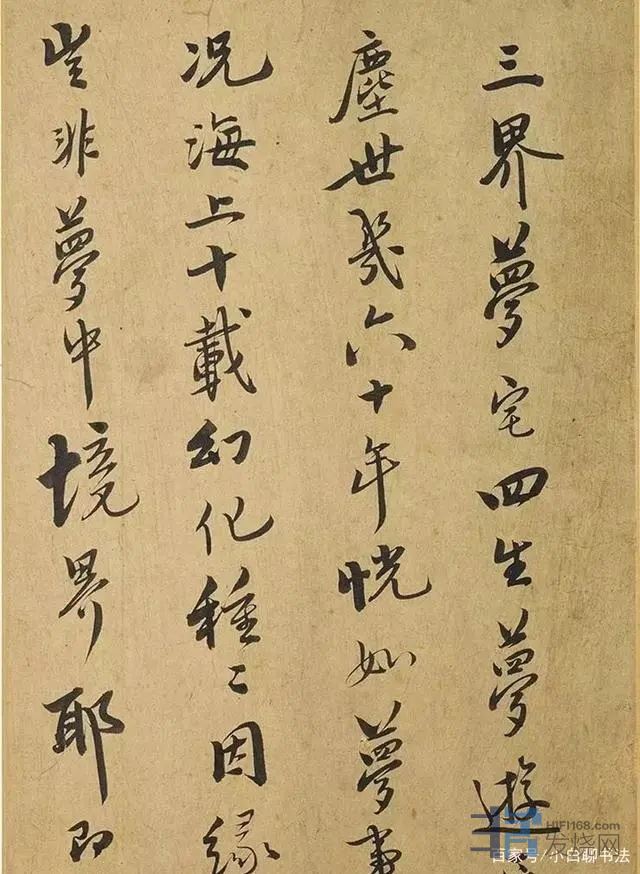 三界夢宅四生夢遊
塵世幾六十年恍如夢事
况海上十載幻化種〻因緣
豈非夢中境界耶即
HIFI168.com
发烧网
百家号/小白聊书法